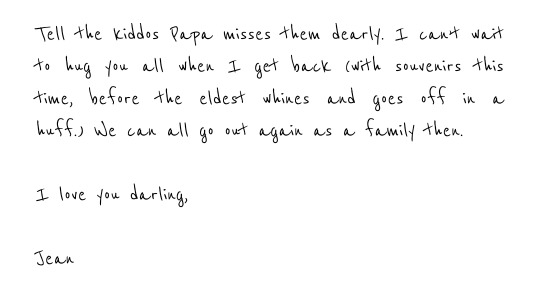 Tell the kiddos Papa misses them dearly. I can't wait
to hug you all when I get back (with souvenirs this
time, before the eldest whines and goes off in a
huff.) We can all go out again as a family then.
I love you darling,
Jean